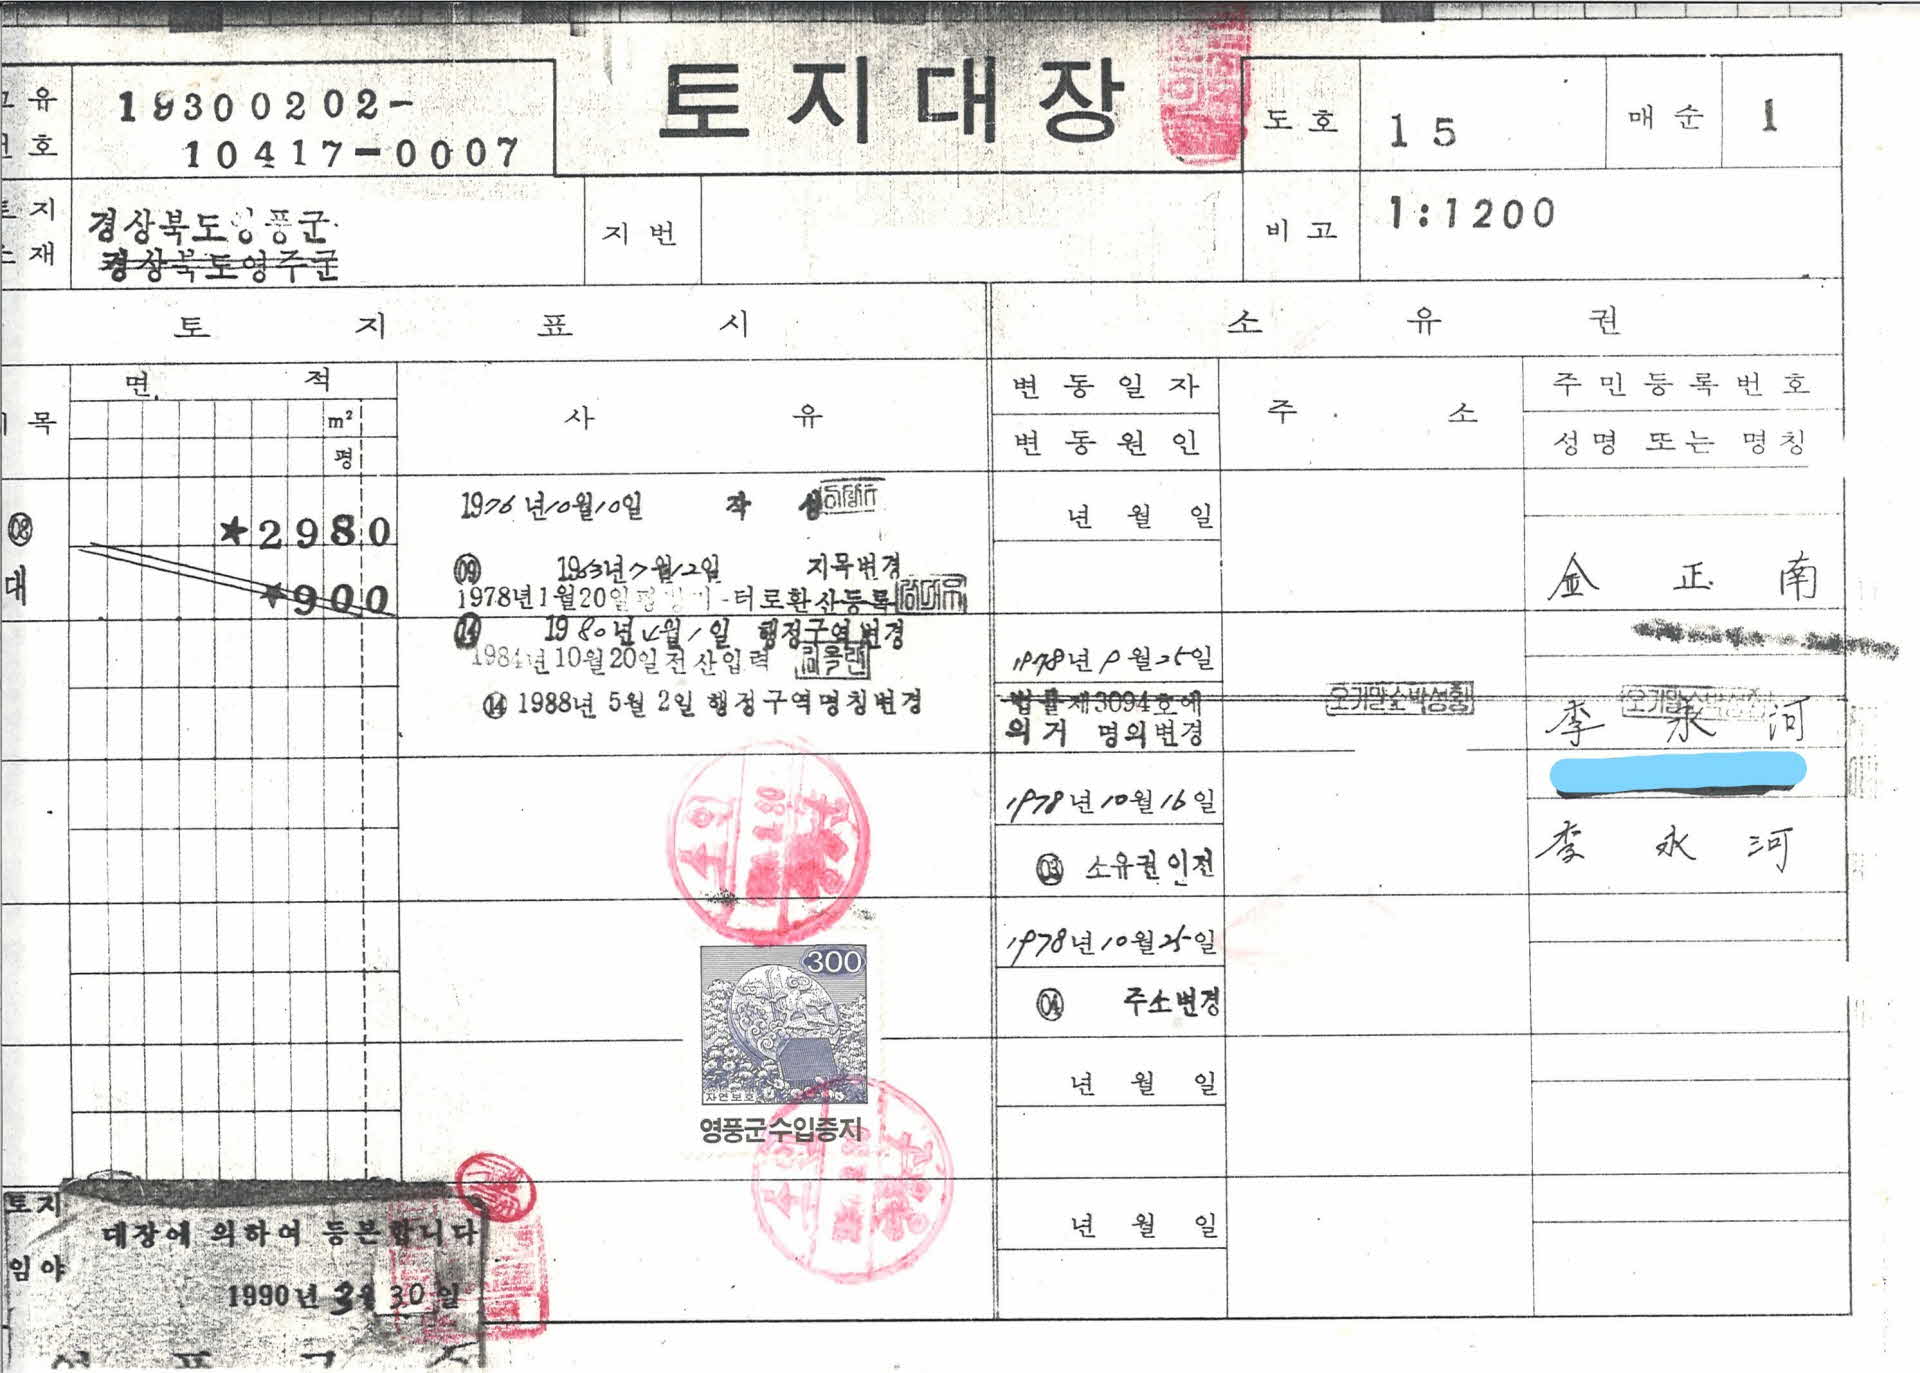 토지대장
유
호
19300202-
10417-0007
도호
15
매순
1
지
재
경상북도영풍군
경상북도영주군
지번
비고
1:1200
토지표시
소유권
목
면적
m²
평
사유
변동일자
변동원인
주소
주민등록번호
성명 또는 명칭
08
대
*2980
*900
1976년10월10일 작성
09 1963년7월12일 지목변경
1978년1월20일평 터로환산등록
14 1980년4월1일 행정구역변경
1984년10월20일전산입력
14 1988년 5월 2일 행정구역명칭변경
년 월 일
金正南
1978년9월25일
법률제3094호에
의거 명의변경
오기말소박성황
李永河
1978년10월16일
03 소유권이전
李永河
1978년10월25일
04 주소변경
년 월 일
년 월 일
300
자연보호
영풍군수입증지
토지
임야
대장에 의하여 등본합니다
1990년 3월 30일